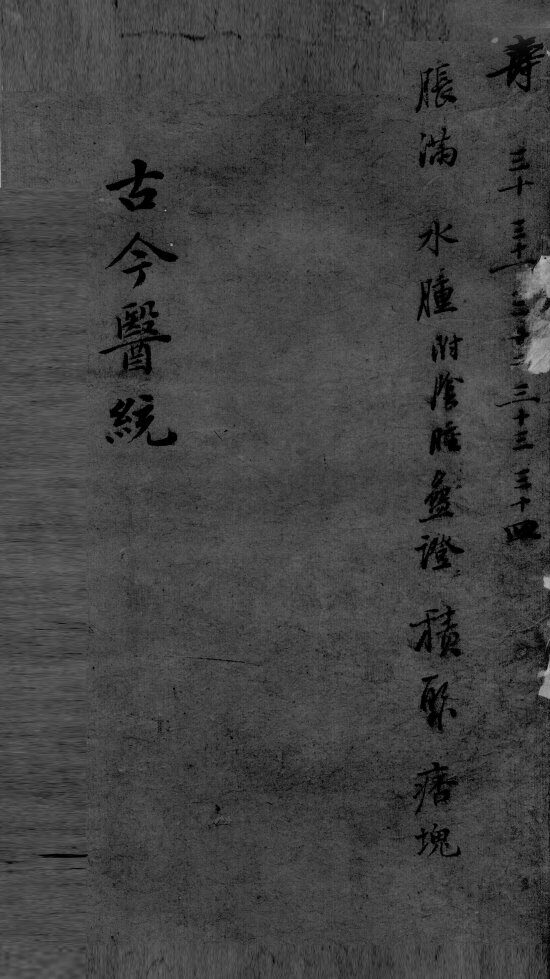 壽 三十 三十一 三十二 三十三 三十四
脹滿 水腫附陰腫 蠱證 積聚 痞塊
古今醫統